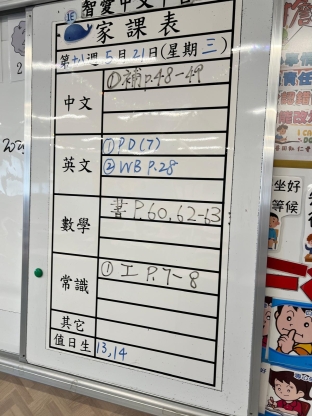 1E 智愛中文平台
家課表
第十八週 5月21日(星期三)
中文 ①補P.48-49
英文 ①PD(7)
②WB P.28
數學 書P.60,62-63
常識 ①工P.7-8
其它
值日生 13,14
坐好
等候
責任